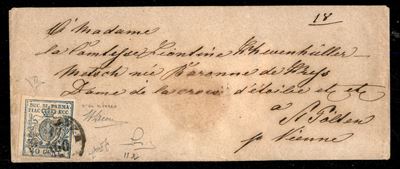 18
A Madame
la Comtesse Léontine Khevenhüller-
Metsch née Baronne de
Dame de la croix d'étoilée etc etc
à
St Polten
pr Vienne
DUC. DI PARMA
PIAC. ECC.
40 CENT.